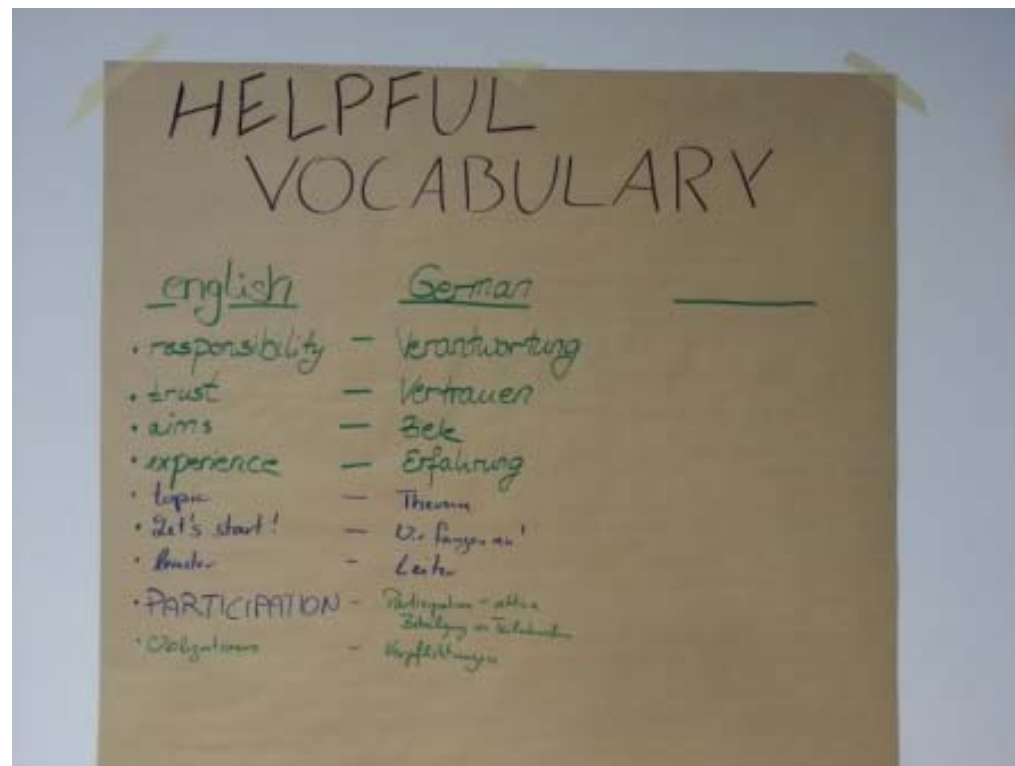 HELPFUL
VOCABULARY
english German
• responsibility – Verantwortung
• trust – Vertrauen
• aims – Ziele
• experience – Erfahrung
• topic – Thema
• Let's start! – Wir fangen an!
• leader – Leiter
• PARTICIPATION – Participation – aktive
Beteiligung von
• Obligations – Verpflichtungen